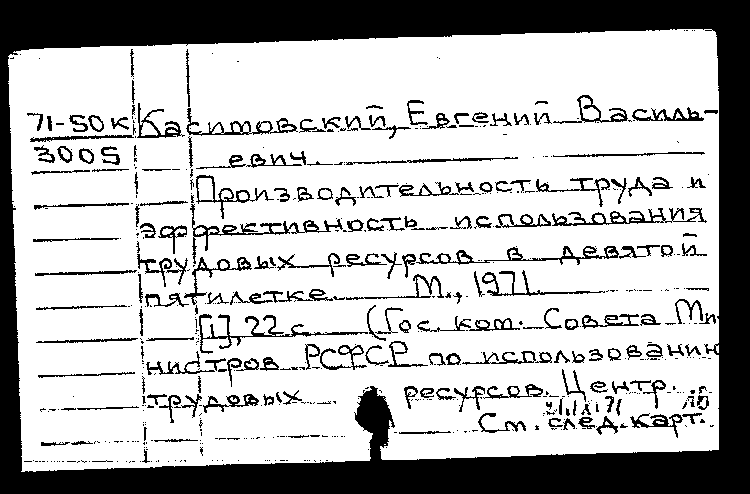 71-50К Касимовский, Евгений Василь-
3005 евич.
Производительность труда и
эффективность использования
трудовых ресурсов в девятой
пятилетке. М., 1971.
[1], 22 с. (Гос. ком. Совета Ми-
нистров РСФСР по использованию
трудовых ресурсов. Центр.
См. след. карт.